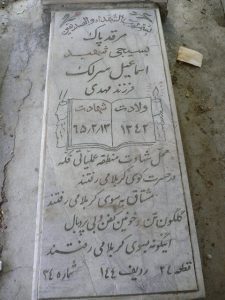 مرقد پاک
بسیجی شهید
اسماعیل سرلک
فرزند مهدی
ولادت شهادت
۱۳۴۲ ۶۵/۲/۱۳
محل شهادت منطقه عملیاتی فکه
در حسرت کوی کربلا می رفتند
مشتاق به سوی کربلا می رفتند
گلگون تن و خونین کفن و بی پر و بال
اینگونه بسوی کربلا می رفتند
قطعه ۲۷ ردیف ۱۴۴ شماره ۲۴